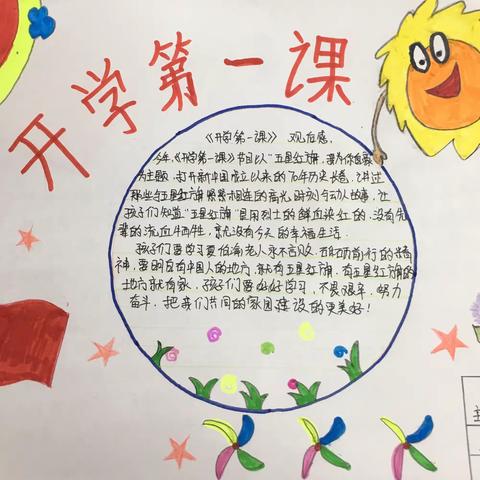 开学第一课
《开学第一课》 观后感。
今年,《开学第一课》节目以“五星红旗,我为你自豪”
为主题,打开新中国成立以来的70年历史长卷,讲述
那些与五星红旗紧紧相连的高光时刻今动人故事,让
孩子们知道“五星红旗”是用烈士的鲜血染红的,没有先
辈的流血牺牲,就没有今天的幸福生活。
孩子们要学习夏伯渝老人永不言败、百折不前行的精
神,要明白有中国人的地方,就有五星红旗,有五星红旗的
地方就有家,孩子们要好好学习,不畏艰辛,努力
奋斗,把我们共同的家园建设的更美好!